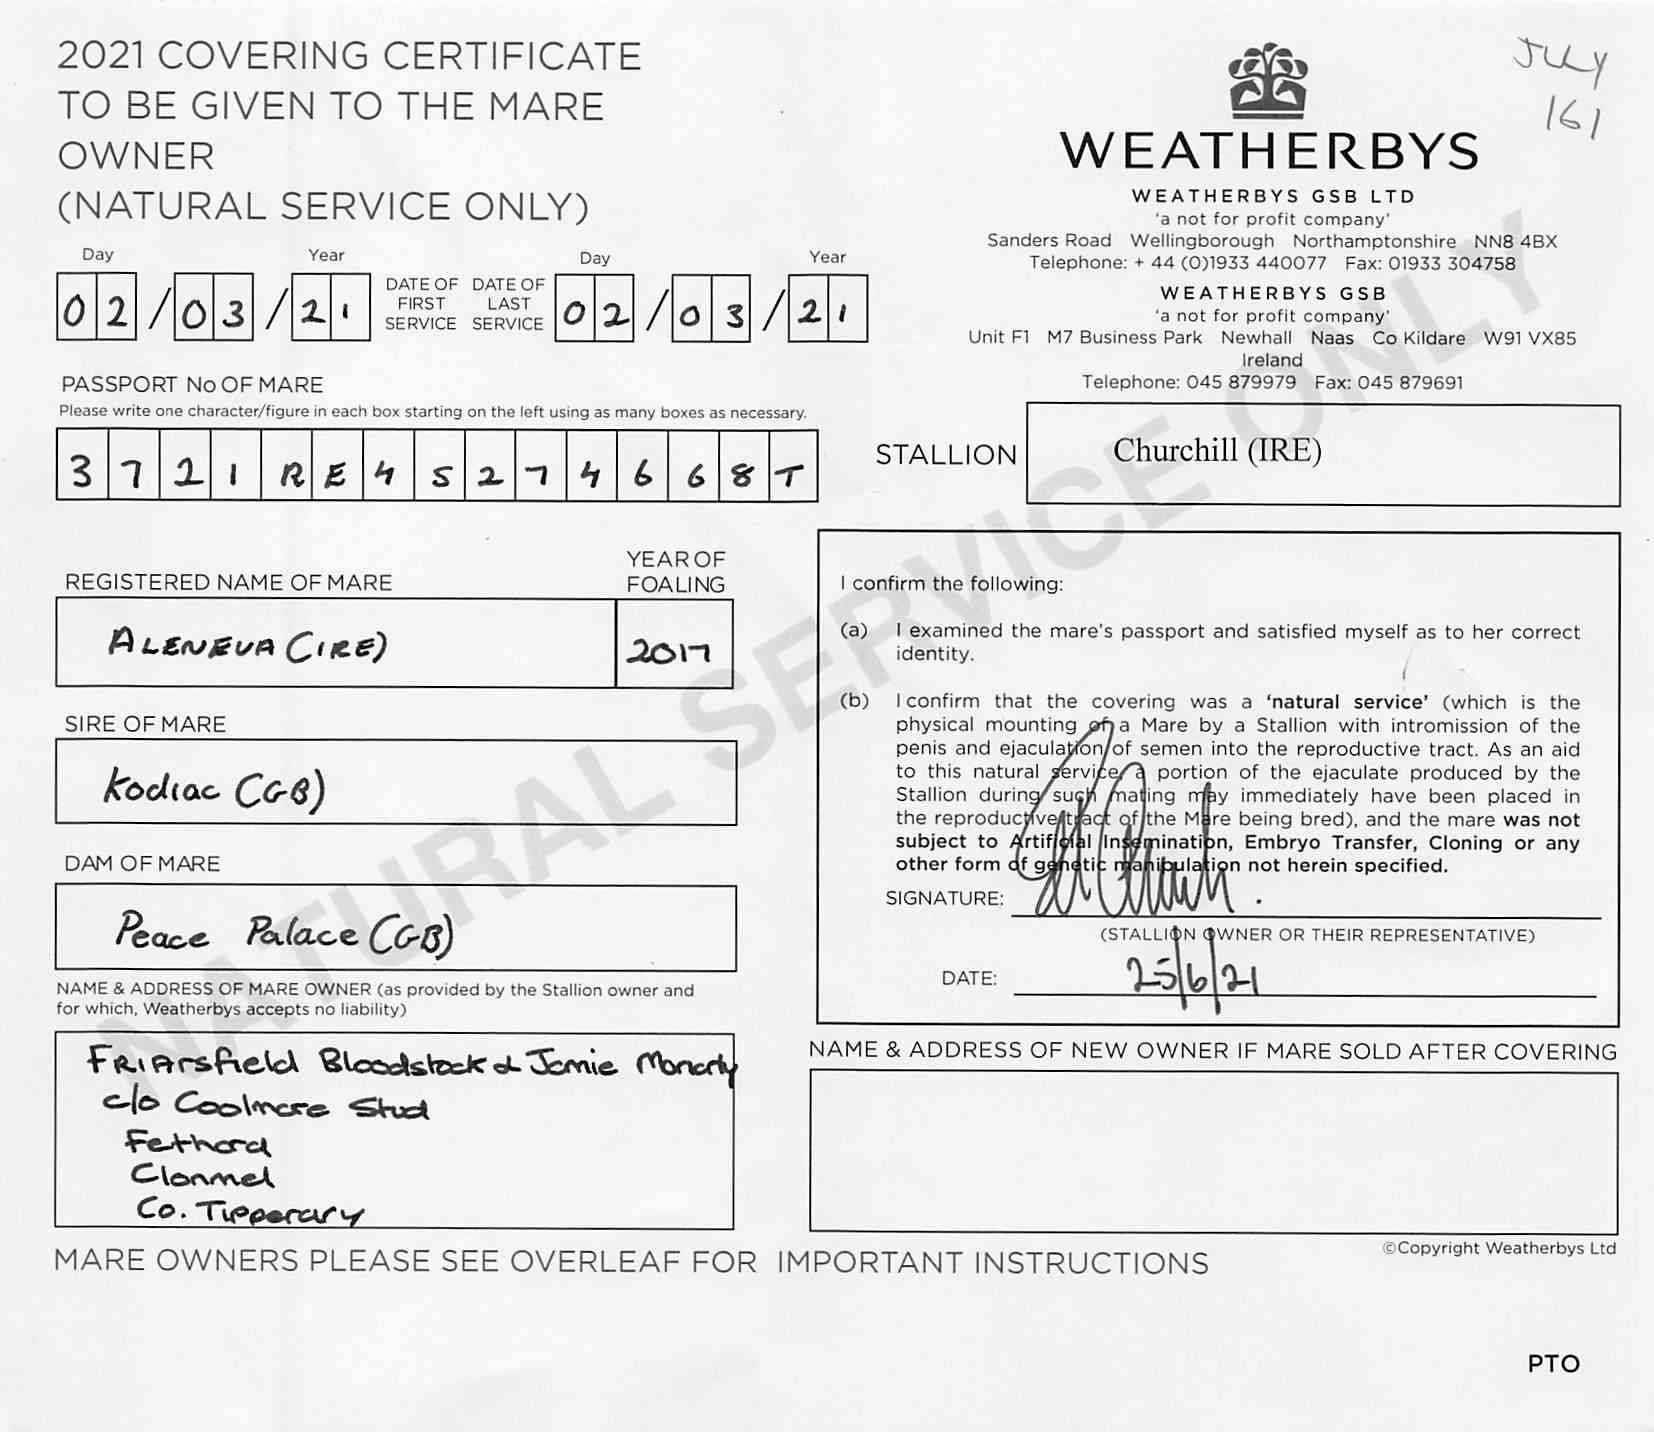 2021 COVERING CERTIFICATE
TO BE GIVEN TO THE MARE
OWNER
(NATURAL SERVICE ONLY)
JULY
161
WEATHERBYS
WEATHERBYS GSB LTD
'a not for profit company'
Sanders Road Wellingborough Northamptonshire NN8 4BX
Telephone: + 44 (0)1933 440077 Fax: 01933 304758
WEATHERBYS GSB
'a not for profit company'
Unit F1 M7 Business Park Newhall Naas Co Kildare W91 VX85
Ireland
Telephone: 045 879979 Fax: 045 879691
Day Year
02/03/21
DATE OF FIRST SERVICE
DATE OF LAST SERVICE
Day Year
02/03/21
PASSPORT No OF MARE
Please write one character/figure in each box starting on the left using as many boxes as necessary.
3721RE45274668T
STALLION
Churchill (IRE)
REGISTERED NAME OF MARE
YEAR OF
FOALING
ALENEVA (IRE)
2017
SIRE OF MARE
Kodiac (GB)
DAM OF MARE
Peace Palace (GB)
NAME & ADDRESS OF MARE OWNER (as provided by the Stallion owner and
for which, Weatherbys accepts no liability)
FRIARsfield Bloodstock & Jamie Moriarty
c/o Coolmore Stud
Fethard
Clonmel
Co. Tipperary
I confirm the following:
(a) I examined the mare's passport and satisfied myself as to her correct
identity.
(b) I confirm that the covering was a 'natural service' (which is the
physical mounting of a Mare by a Stallion with intromission of the
penis and ejaculation of semen into the reproductive tract. As an aid
to this natural service, a portion of the ejaculate produced by the
Stallion during such mating may immediately have been placed in
the reproductive tract of the Mare being bred), and the mare was not
subject to Artificial Insemination, Embryo Transfer, Cloning or any
other form of genetic manipulation not herein specified.
SIGNATURE:
(STALLION OWNER OR THEIR REPRESENTATIVE)
DATE: 25/6/21
NAME & ADDRESS OF NEW OWNER IF MARE SOLD AFTER COVERING
©Copyright Weatherbys Ltd
MARE OWNERS PLEASE SEE OVERLEAF FOR IMPORTANT INSTRUCTIONS
PTO
NATURAL SERVICE ONLY